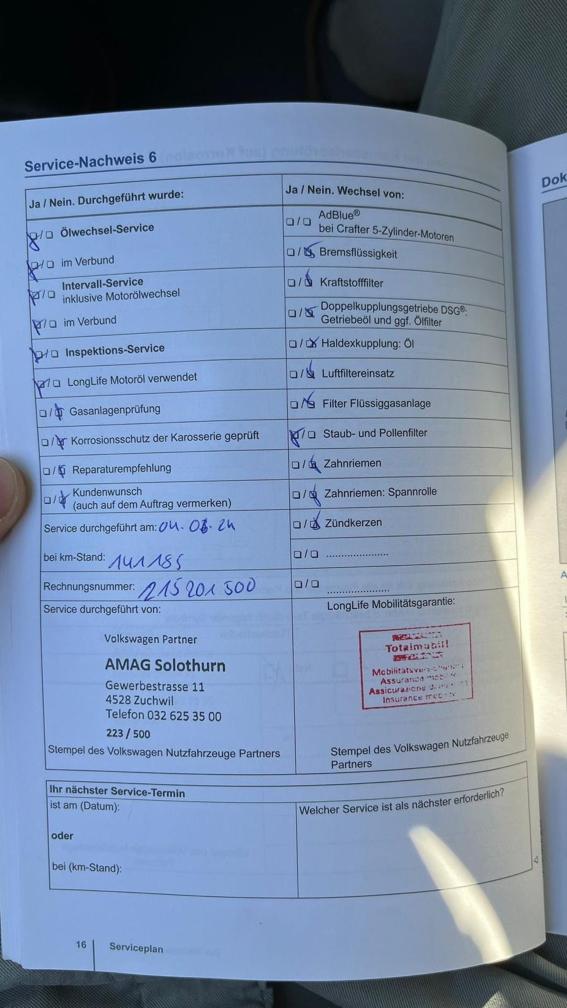 Service-Nachweis 6
Ja / Nein. Durchgeführt wurde:
Ölwechsel-Service
im Verbund
Intervall-Service
inklusive Motorölwechsel
im Verbund
Inspektions-Service
LongLife Motoröl verwendet
Gasanlagenprüfung
Korrosionsschutz der Karosserie geprüft
Reparaturempfehlung
Kundenwunsch
(auch auf dem Auftrag vermerken)
Service durchgeführt am: 04. 03. 24
bei km-Stand: 141185
Rechnungsnummer: 215201500
Service durchgeführt von:
Volkswagen Partner
AMAG Solothurn
Gewerbestrasse 11
4528 Zuchwil
Telefon 032 625 35 00
223 / 500
Stempel des Volkswagen Nutzfahrzeuge Partners
Ja / Nein. Wechsel von:
AdBlue®
bei Crafter 5-Zylinder-Motoren
Bremsflüssigkeit
Kraftstofffilter
Doppelkupplungsgetriebe DSG®:
Getriebeöl und ggf. Ölfilter
Haldexkupplung: Öl
Luftfiltereinsatz
Filter Flüssiggasanlage
Staub- und Pollenfilter
Zahnriemen
Zahnriemen: Spannrolle
Zündkerzen
.....................
.....................
LongLife Mobilitätsgarantie:
Totalmobil!
Stempel des Volkswagen Nutzfahrzeuge
Partners
Ihr nächster Service-Termin
ist am (Datum):
oder
bei (km-Stand):
Welcher Service ist als nächster erforderlich?
16 Serviceplan
Dok